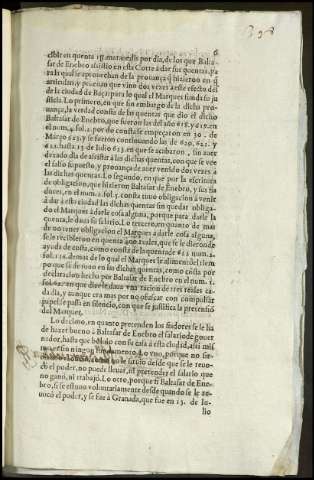 6
cibir en quenta 17. marauedis por dia, de los que Balta-
sar de Enebro assistio en esta Corte à dar sus quentas, pa
ra lo qual se aprouechan de la prouança q̃ hizieron en q̃
articulan, y prueuan que vino dos vezes a este efecto desde
la ciudad de Baça; para lo qual el Marques funda su ju
sticia. Lo primero, en que sin embargo de la dicha pro-
uança, la verdad consta de las quentas que dio el dicho
Baltasar de Enebro, que fueron las del año 618. y 619. en
el num. 4. fol. 2. por do consta se empeçaron en 30. de
Março 623. y se fueron continuando las de 620. 621. y
622. hasta 13. de Iulio 623. en que se acabaron, sin auer
dexado dia de assistir à las dichas quentas, con que se vee
el falso supuesto, y prouança de auer venido dos vezes à
las dichas quentas. Lo segundo, en que por la escritura
de obligacion, que hizieron Baltasar de Enebro, y sus fia
dores, en el num. 2. fol. 5. consta tuuo obligacion à venir
à dar à esta ciudad las dichas quentas sin quedar obliga-
do el Marques à darle cosa alguna, porque para darle la
cuenta, le daua su salario. Lo tercero, en quanto de mas
de no tener obligacion el Marques à darle cosa alguna,
se le recibieron en quenta 400 reales, que se le dieron de
ayuda de costa, como consta de la quenta de 622 num. 4.
fol. 118. demas de lo qual el Marques le alimentò el tiem
po que se detuuo en las dichas quentas, como consta por
declaracion hecha por Baltasar de Enebro en el num. 1.
fol. 62. en que dize le daua vna racion de tres reales ca-
da dia, y aunque era mas por no ofuscar con compulsar
papel se passa en silencio, con que se justifica la pretension
del Marques.
Lo decimo, en quanto pretenden los fiadores se le ha
de hazer bueno à Baltasar de Enebro el salario de gouer
nador, hasta que boluio con su casa à esta ciudad, assi mis
mo està sin ningun fundamento. Lo vno, porque no sir-
desde que se le reuo-
cò el poder, no puede lleuar, ni pretender el salario que
no ganò, ni trabajò. Lo otro, porque si Baltasar de Ene-
bro, si se estuuo voluntariamente desde quando se le re-
uocò el poder, y se fue à Granada, que fue en 13. de Iu-
lio